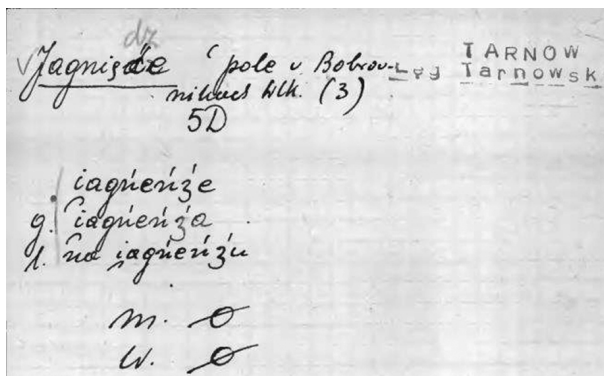 dz
√Jagniącie ‘pole v Bobrow-
nikach Wlk. (3)
5D
Łęg
TARNOW
Tarnowsk
iagńeńʒ́e
g. iagńeńʒ́a
l. na iagńeńʒ́u
m. ø
w. ø